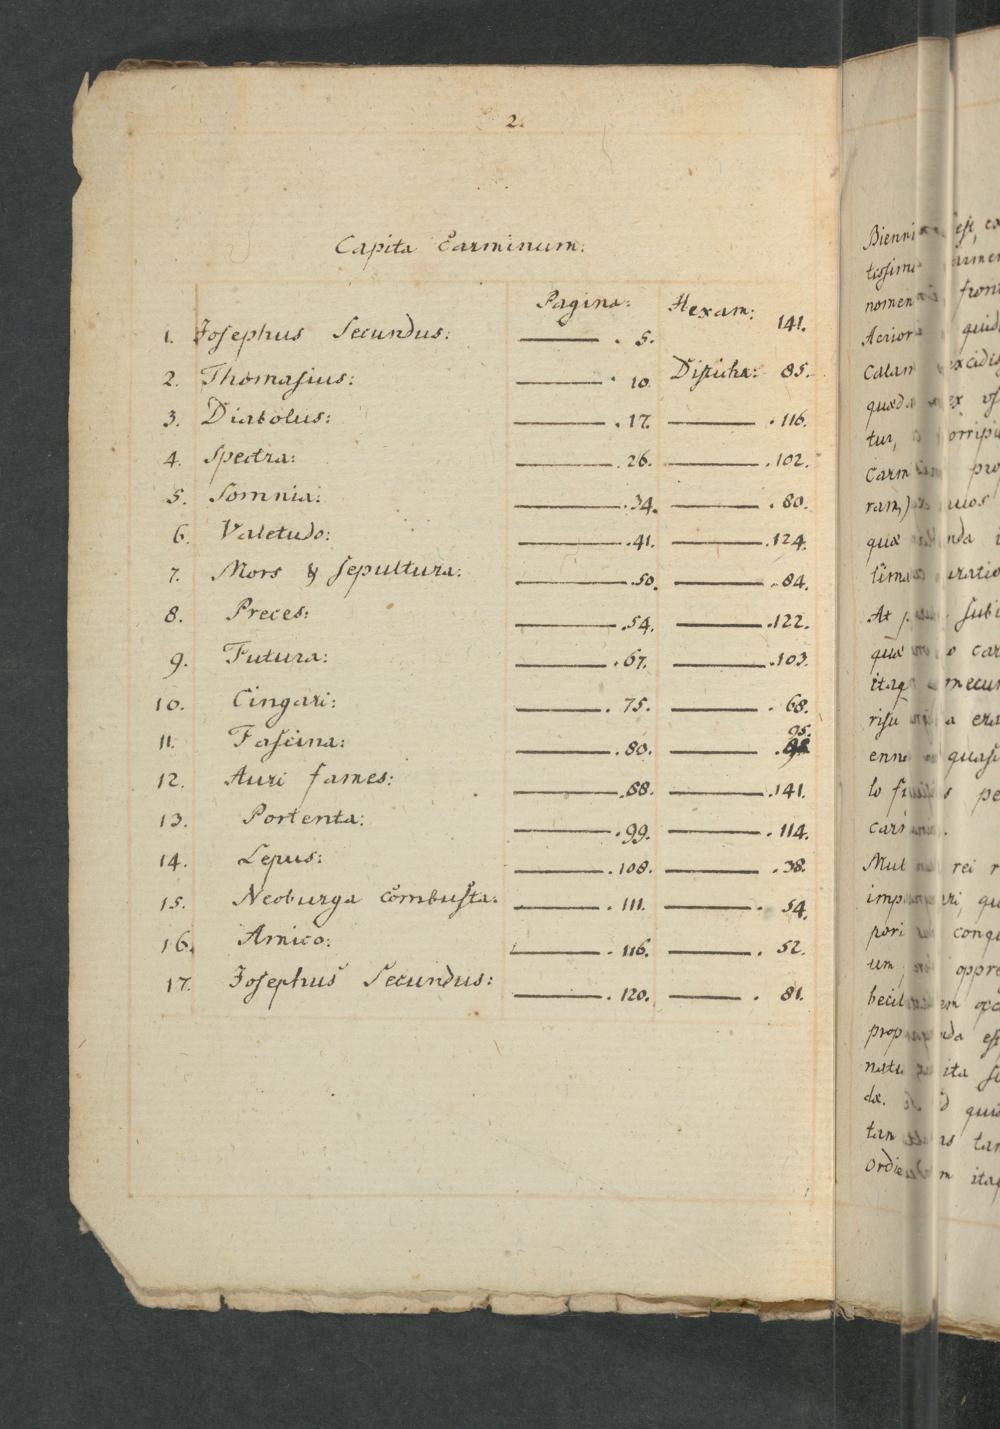 2.
Capita Carminum:
Pagina: Hexam:
1. Josephus Secundus: . 5. 141.
2. Thomasius: . 10. Disticha: 85.
3. Diabolus: . 17. . 116.
4. Spectra: . 26. . 102.
5. Somnia: . 34. . 80.
6. Valetudo: . 41. . 124.
7. Mors & sepultura: . 50. . 84.
8. Preces: . 54. . 122.
9. Futura: . 67. . 103.
10. Cingari: . 75. . 68.
11. Fascina: . 80. . 95.
12. Auri fames: . 88. . 141.
13. Portenta: . 99. . 114.
14. Lepus: . 108. . 38.
15. Neoburga Combusta: . 111. . 54.
16. Amico: . 116. . 52.
17. Josephus Secundus: . 120. . 81.
Bienni est,
tissime
nomen front
Acrior quid
Calam
quæda ex
tur,
Carm pro
ram,) quos
quæ nda
lima
At subi
quæ o car
itaq mecum
risu a
enn quasi
lo pe
carm
Mul rei
imp ri, qu
pori conqu
um oppre
becil em
prop da est
natu ita
dæ. quis
tam as tam
Ordie m itaq